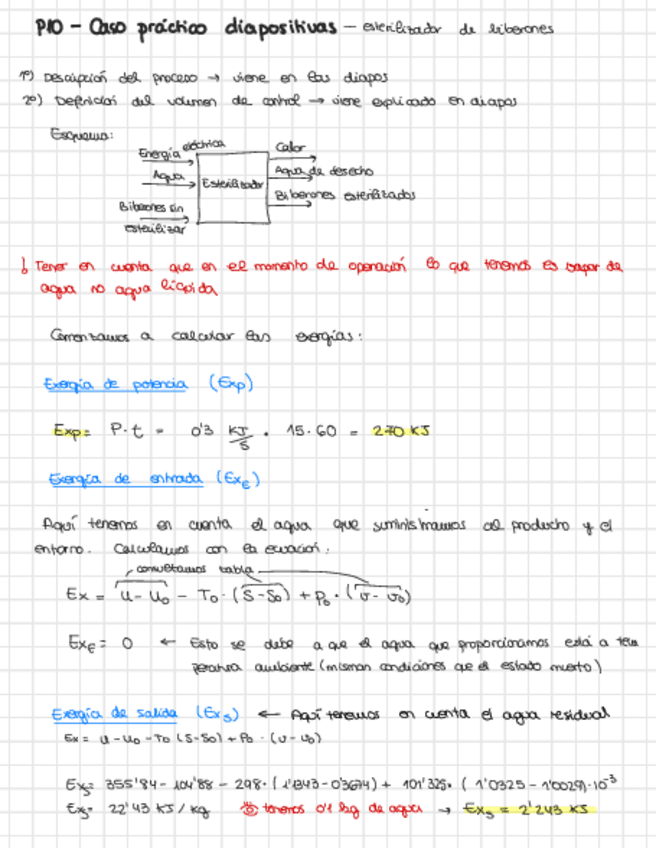 P10 - Caso práctico diapositivas - esterilizador de biberones
1º) Descripción del proceso → viene en las diapos
2º) Definición del volumen de control → viene explicado en diapos
Esquema:
Energía eléctrica
Agua
Biberones sin
esterilizar
Esterilizador
Calor
Agua de desecho
Biberones esterilizados
! Tener en cuenta que en el momento de operación lo que tenemos es vapor de
agua no agua líquida
Comenzamos a calcular las exergías:
Exergía de potencia (Exp)
Exp = P·t = 0'3 KJ/s · 15·60 = 270 KJ
Exergía de entrada (ExE)
Aquí tenemos en cuenta el agua que suministramos al producto y el
entorno. Calculamos con la ecuación:
consultamos tabla
Ex = u - u0 - T0 · (S - S0) + P0 · (v - v0)
ExE = 0 ← Esto se debe a que el agua que proporcionamos está a tem
peratura ambiente (mismas condiciones que el estado muerto)
Exergía de salida (Exs) ← Aquí tenemos en cuenta el agua residual
Ex = u - u0 - T0 (S - S0) + P0 · (v - v0)
Exs = 355'84 - 104'88 - 298 · (1'1343 - 0'3674) + 101'325 · (1'0325 - 1'0029)·10⁻³
Exs = 22'43 KJ/kg tenemos 0'1 kg de agua → Exs = 2'243 KJ